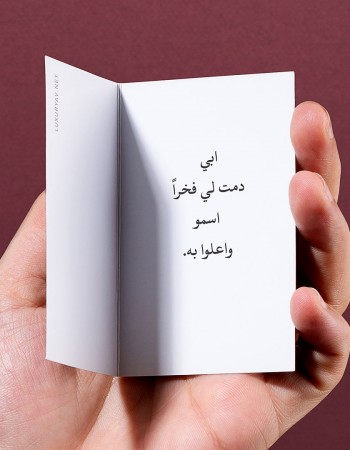 ابي
دمت لي فخراً
اسمو
واعلوا به.